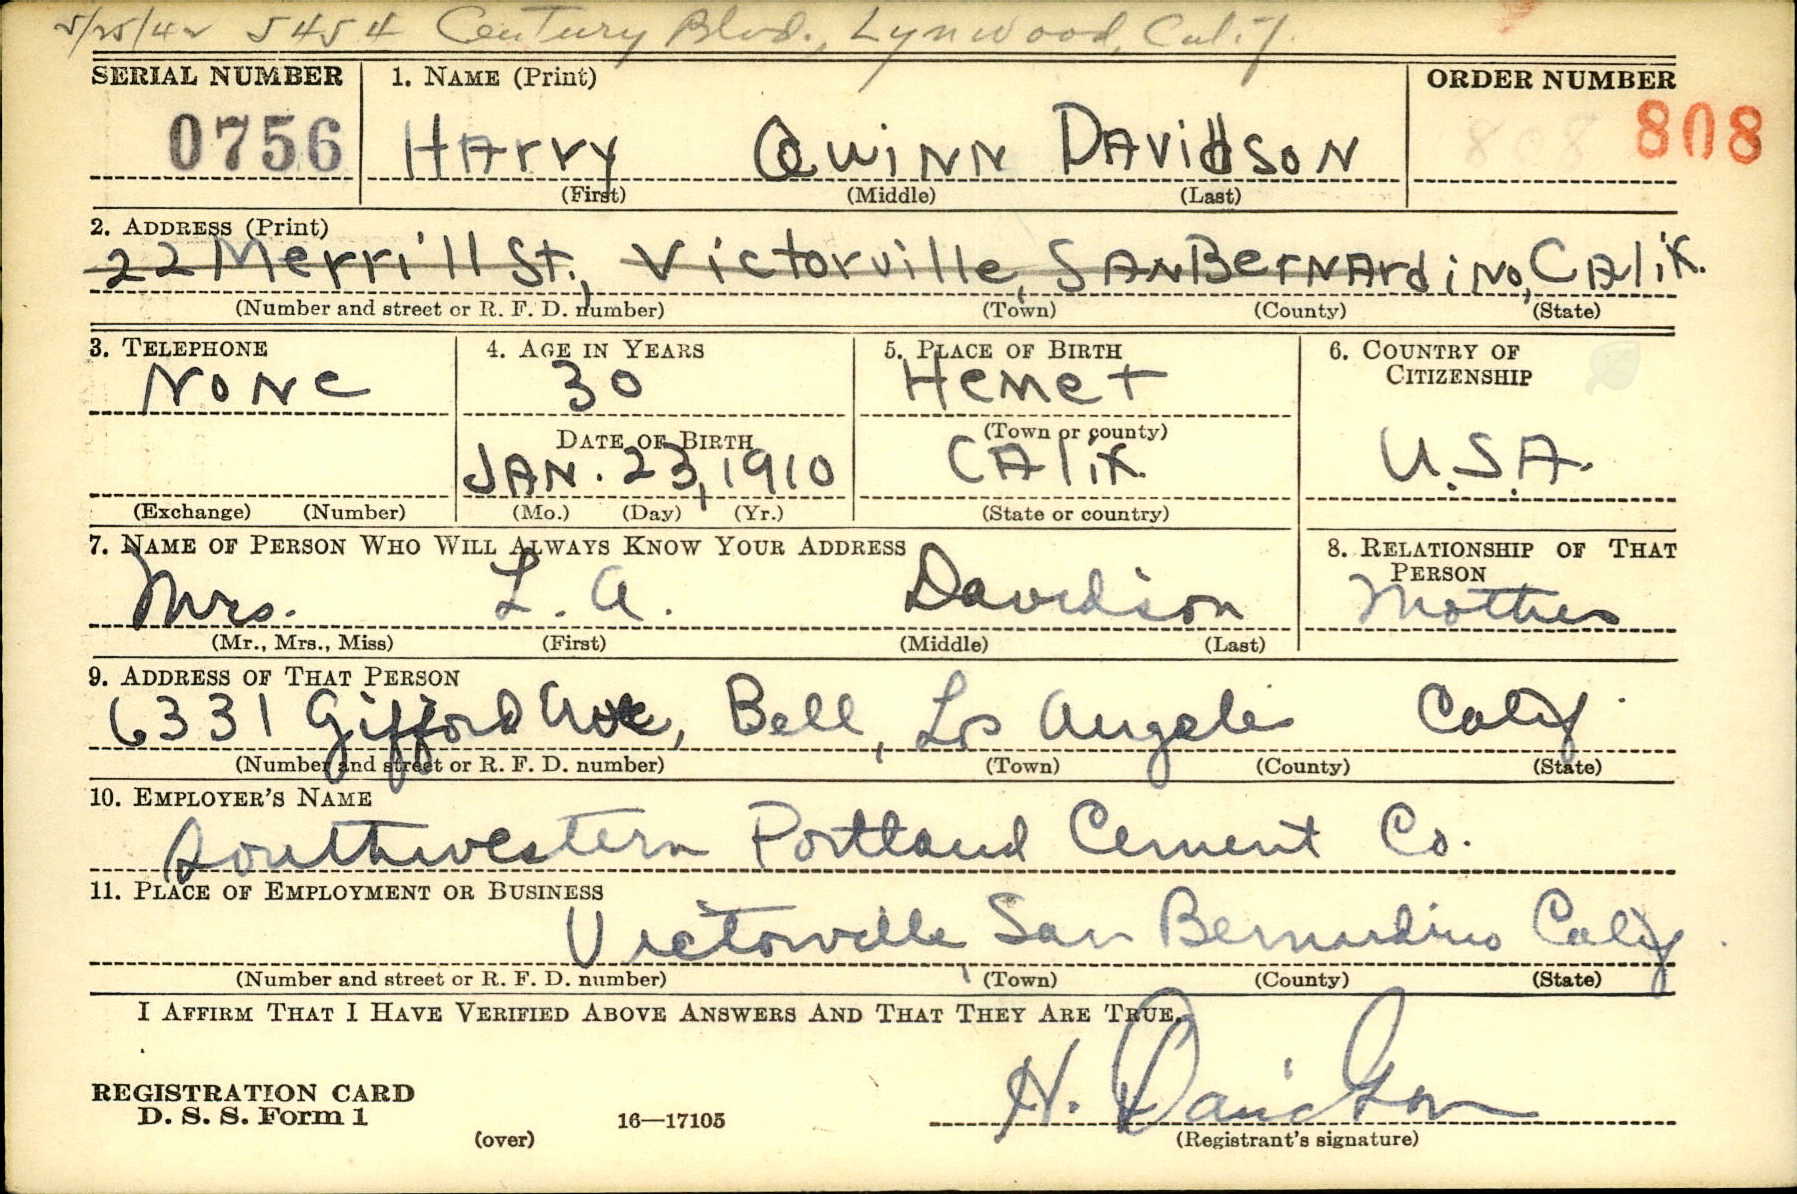 5/25/42 5454 Century Blvd., Lynwood, Calif.
SERIAL NUMBER 1. NAME (Print) ORDER NUMBER
0756 HArry Quinn DAvidson 808 808
(First) (Middle) (Last)
2. ADDRESS (Print)
22 Merrill St., Victorville, SAN BerNArdino, CAlif.
(Number and street or R. F. D. number) (Town) (County) (State)
3. TELEPHONE 4. AGE IN YEARS 5. PLACE OF BIRTH 6. COUNTRY OF
CITIZENSHIP
None 30 Hemet
(Town or county)
DATE OF BIRTH
JAN. 23, 1910 CAlif. U.S.A.
(Exchange) (Number) (Mo.) (Day) (Yr.) (State or country)
7. NAME OF PERSON WHO WILL ALWAYS KNOW YOUR ADDRESS 8. RELATIONSHIP OF THAT
PERSON
Mrs. L. A. Davidson Mother
(Mr., Mrs., Miss) (First) (Middle) (Last)
9. ADDRESS OF THAT PERSON
6331 Gifford Ave, Bell, Los Angeles Calif.
(Number and street or R. F. D. number) (Town) (County) (State)
10. EMPLOYER'S NAME
Southwestern Portland Cement Co.
11. PLACE OF EMPLOYMENT OR BUSINESS
Victorville, San Bernardino Calif.
(Number and street or R. F. D. number) (Town) (County) (State)
I AFFIRM THAT I HAVE VERIFIED ABOVE ANSWERS AND THAT THEY ARE TRUE.
H. Davidson
REGISTRATION CARD
D. S. S. Form 1
(over) 16—17105 (Registrant's signature)